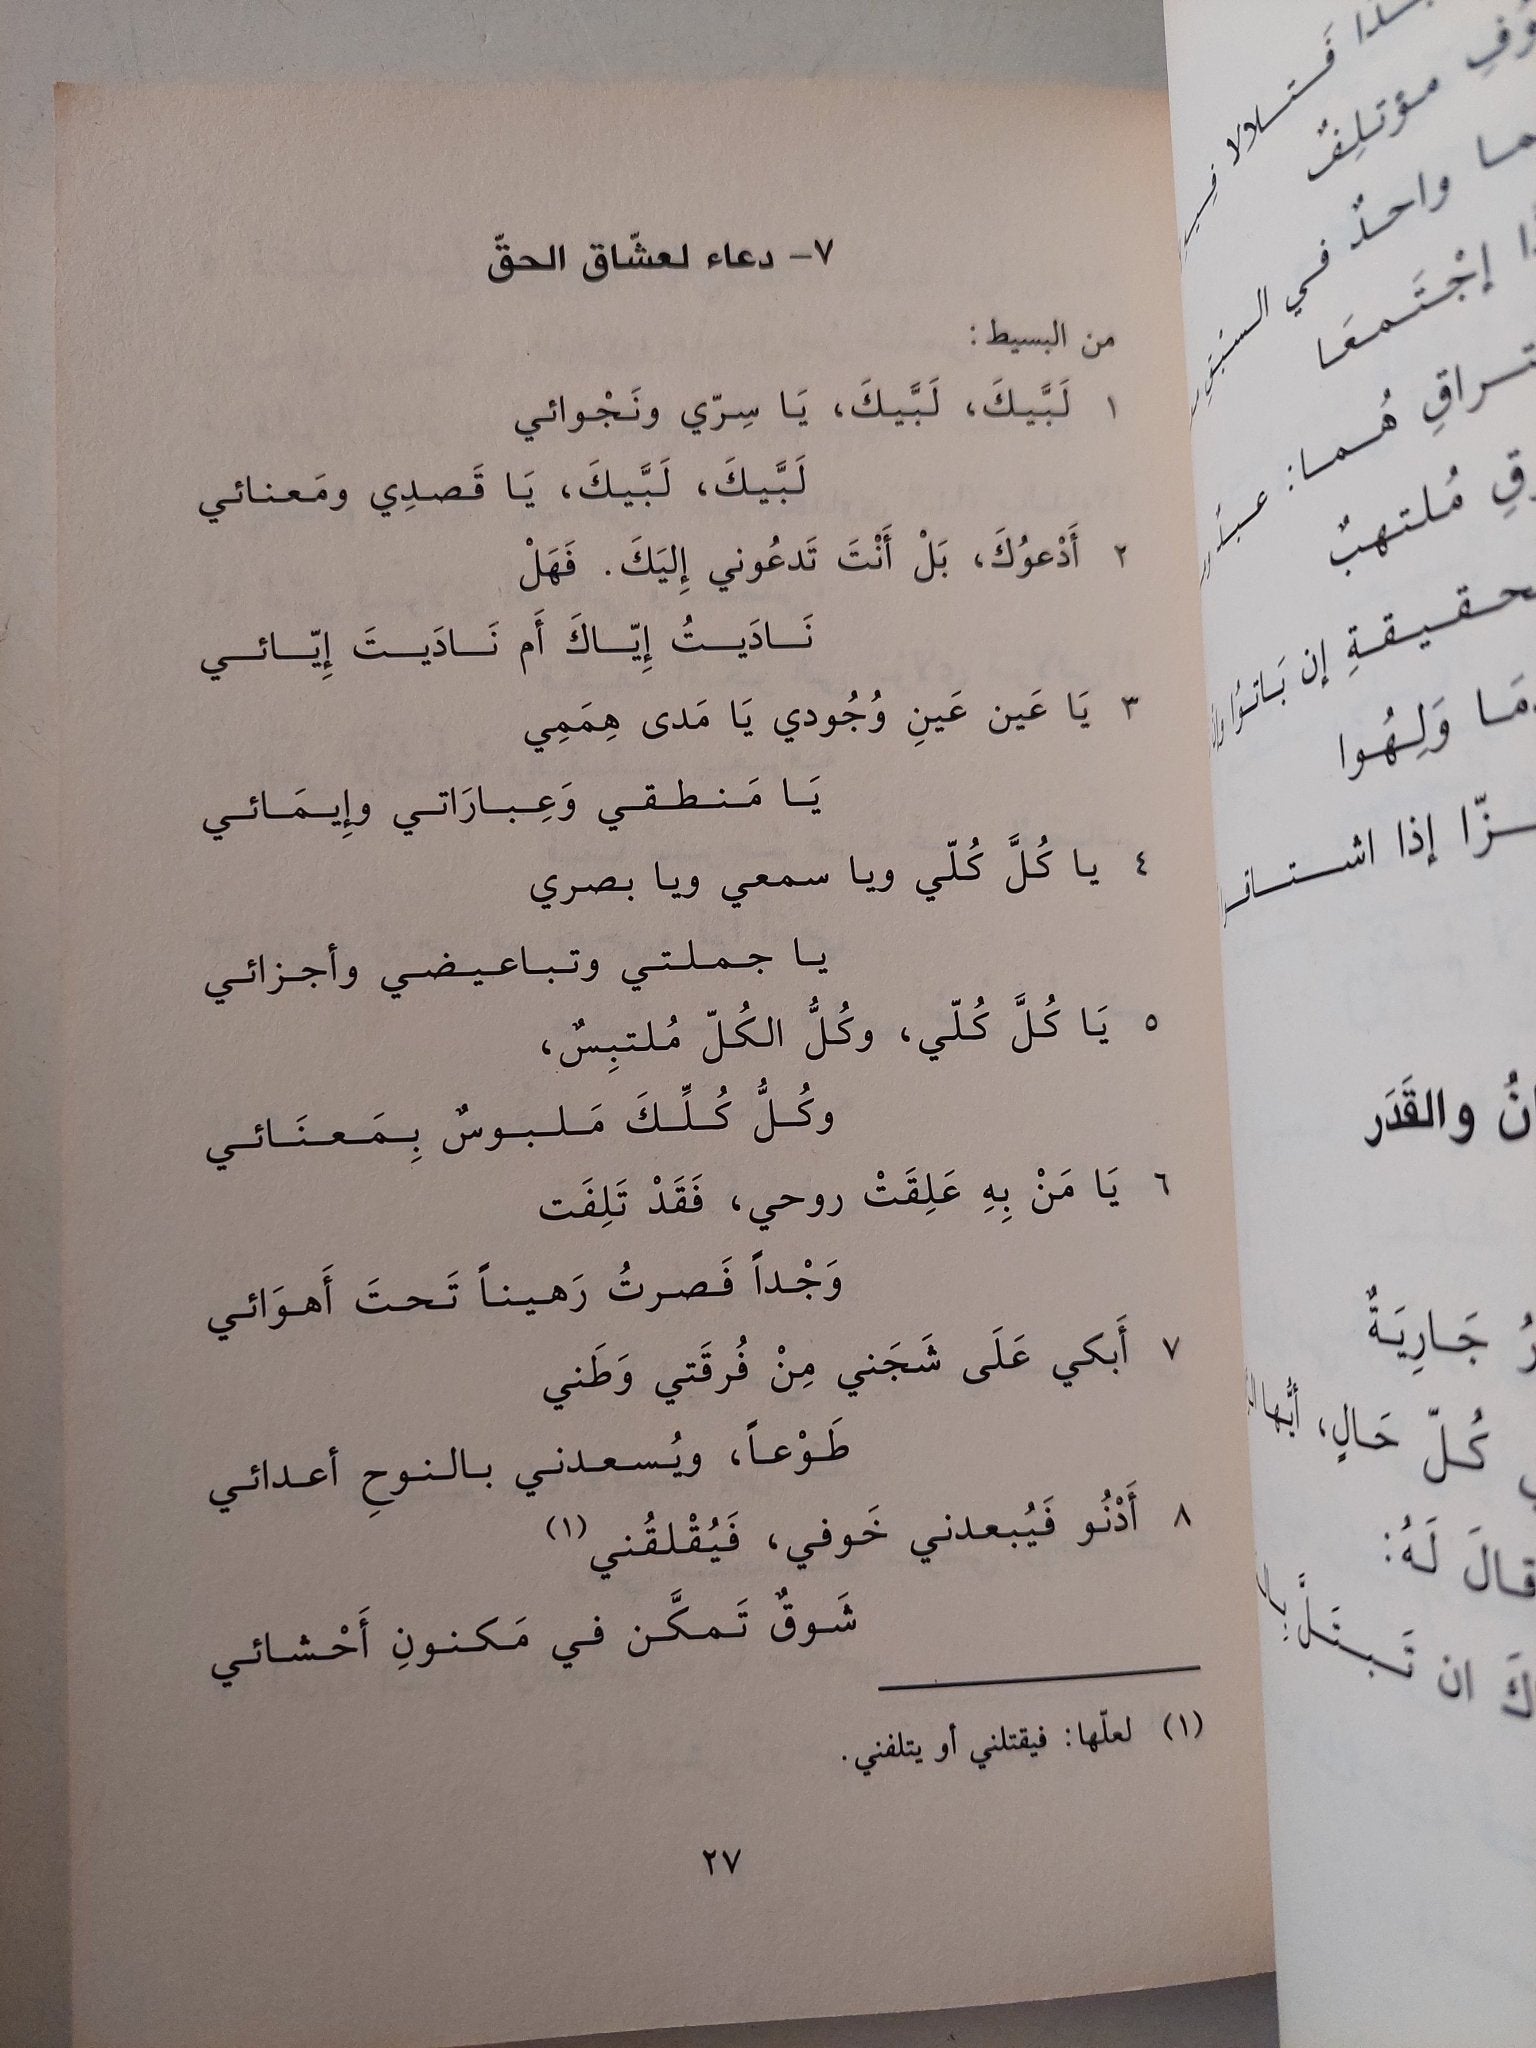 ٧- دعاء لعشّاق الحقّ
من البسيط:
١ لَبَّيكَ، لَبَّيكَ، يَا سِرّي ونَجْوائي
لَبَّيكَ، لَبَّيكَ، يَا قَصدِي ومَعنائي
٢ أَدْعوُكَ، بَلْ أَنْتَ تَدعُوني إِليَكَ. فَهَلْ
نَاديَتُ إِيّاكَ أَم نَاديَتَ إِيّائي
٣ يَا عَين عَينِ وُجُودي يَا مَدى هِمَمِي
يَا مَنطقي وَعِبارَاتي وإِيمَائي
٤ يا كُلَّ كُلّي ويا سمعي ويا بصري
يا جملتي وتباعيضي وأجزائي
٥ يَا كُلَّ كُلّي، وكُلُّ الكُلّ مُلتبِسٌ،
وكُلُّ كُلِّكَ مَلبوسٌ بِمَعنَائي
٦ يَا مَنْ بِهِ عَلِقَتْ روحي، فَقَدْ تَلِفَت
وَجْداً فَصرتُ رَهيناً تَحتَ أَهوَائي
٧ أَبكي عَلَى شَجَني مِنْ فُرقَتي وَطَني
طَوْعاً، ويُسعدني بالنوحِ أعدائي
٨ أَدْنُو فَيُبعدني خَوفي، فَيُقْلقُني(١)
شَوقٌ تَمكَّن في مَكنونِ أَحْشائي
(١) لعلّها: فيقتلني أو يتلفني.
٢٧
مؤتلِفٌ
واحدٌ في
إجْتَمعَا
هُما:
مُلتهبٌ
إن بَاتوُا
وَلِهُوا
إذا
والقَدَر
جَارِيَةٌ
كُلّ حَالٍ، أيُّها
قالَ لَهُ:
ان